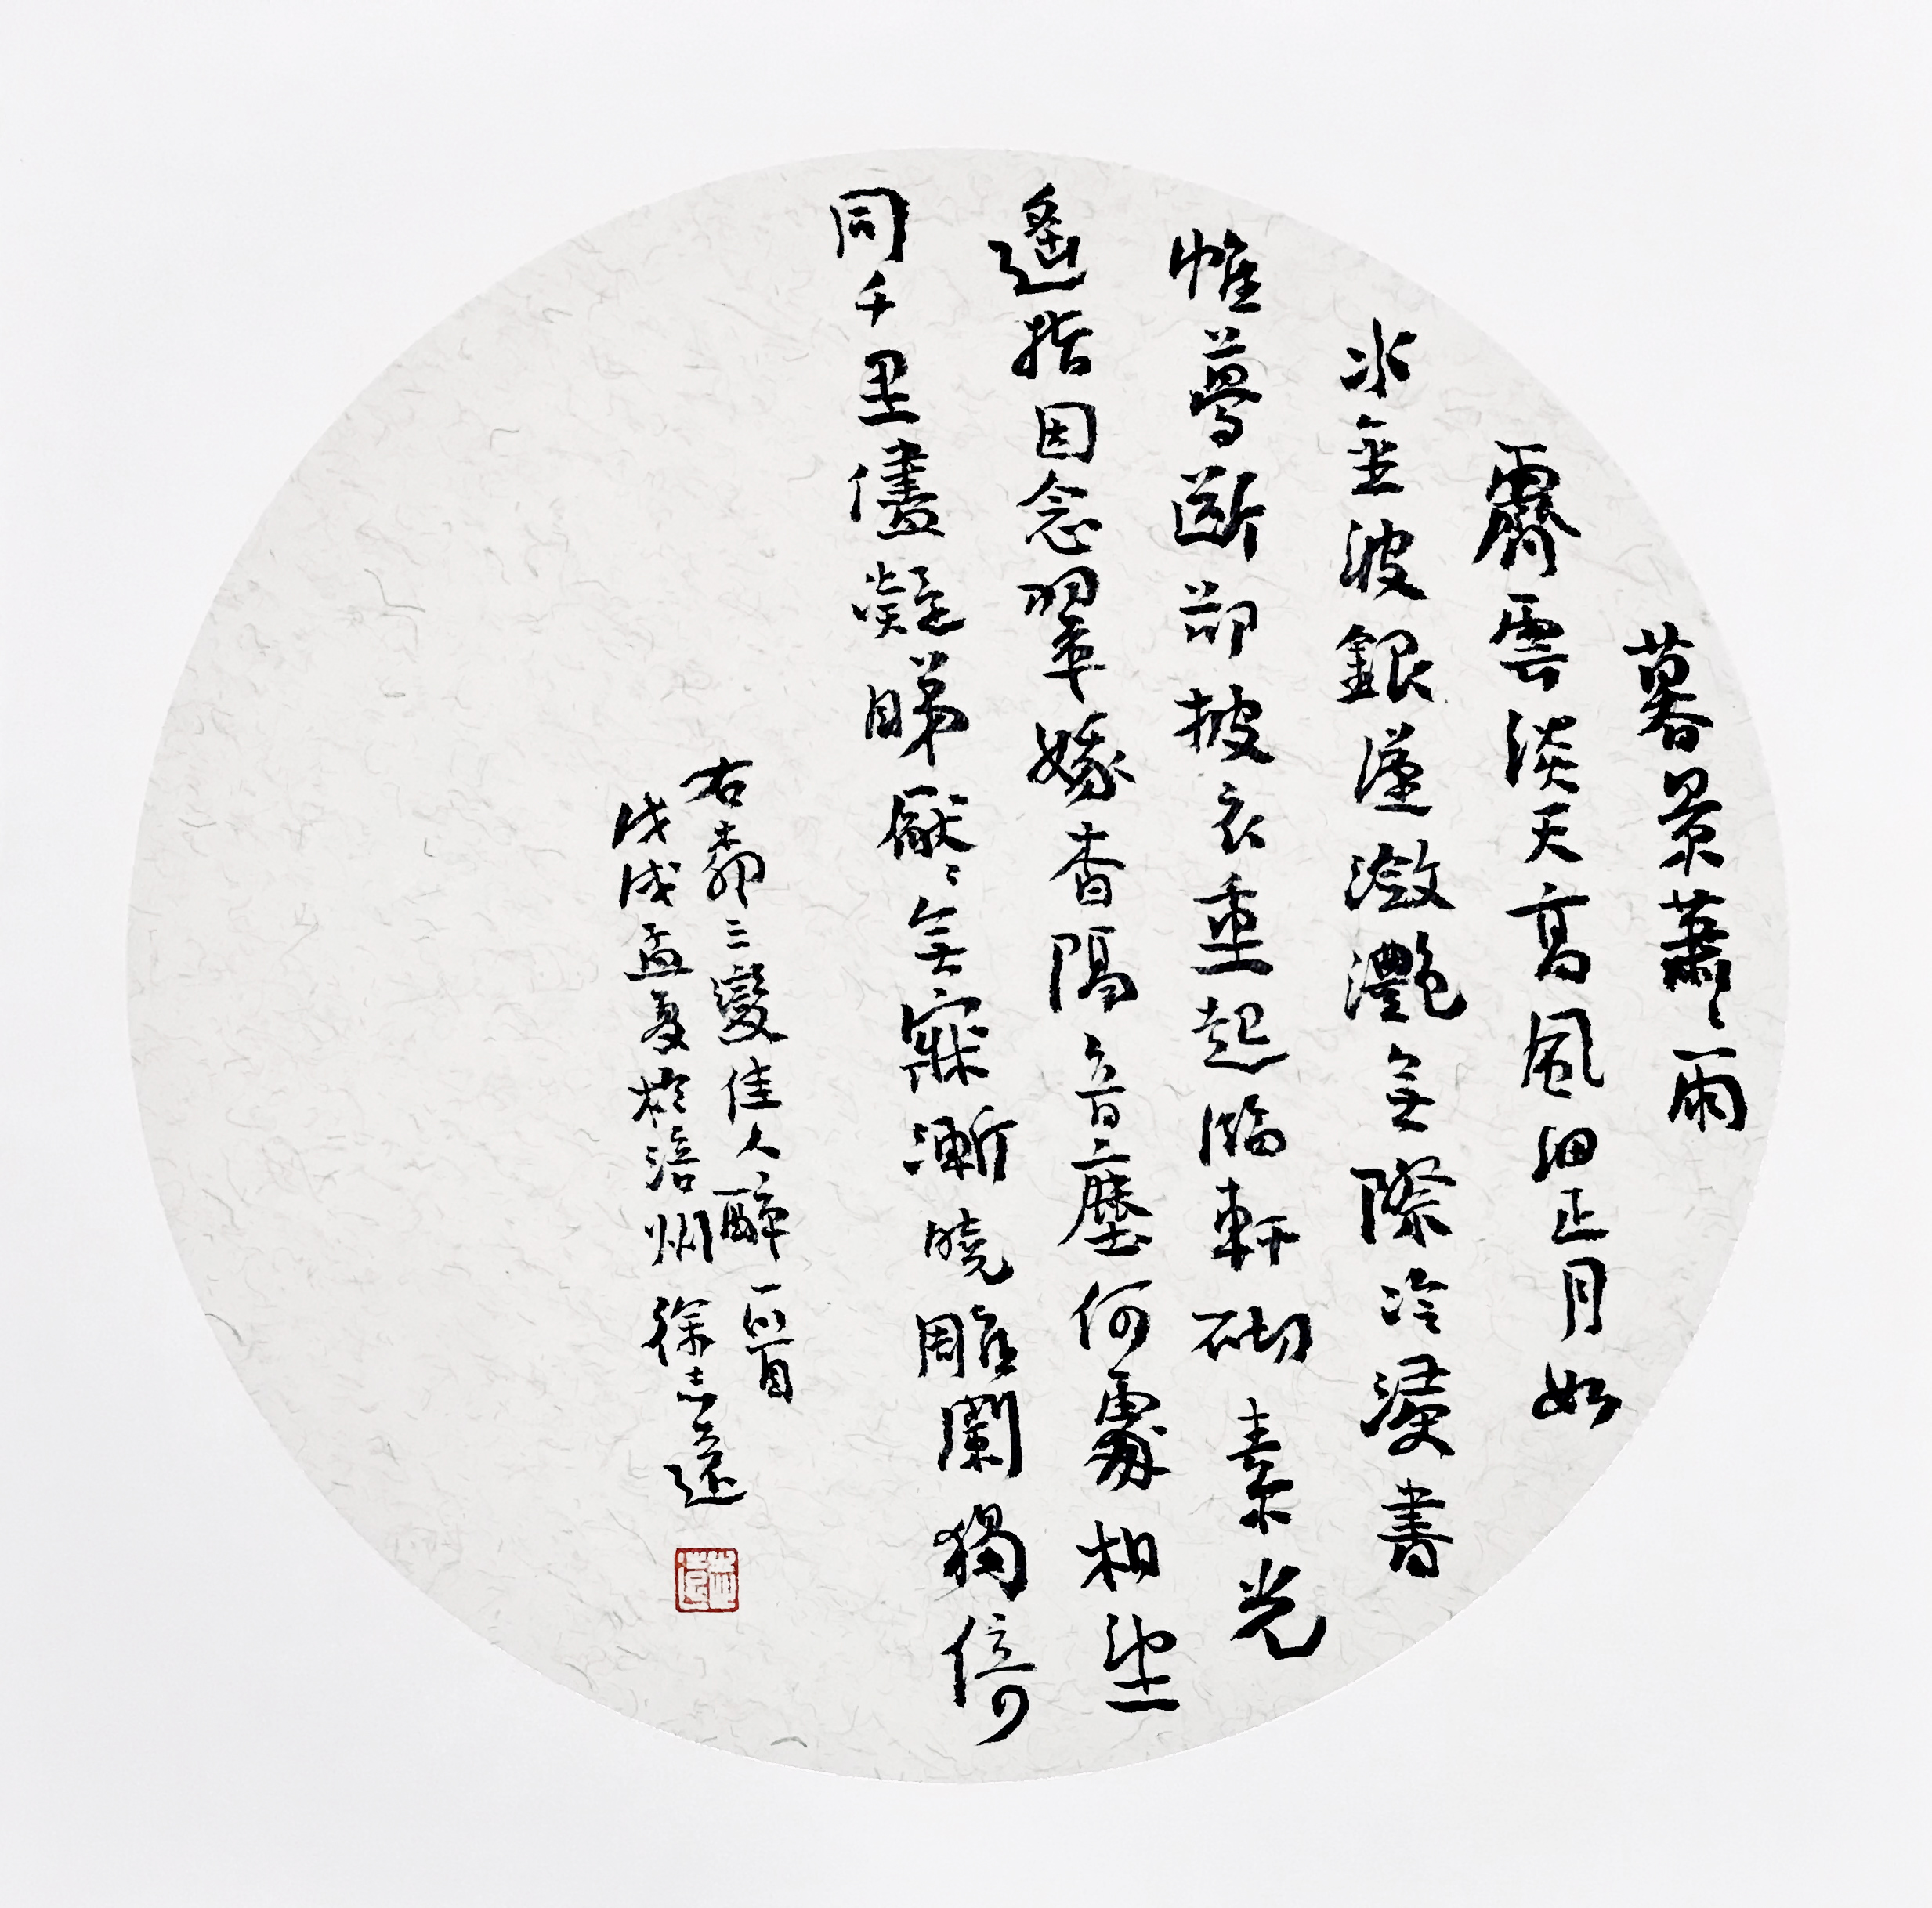 暮景蕭〻雨
霽雲淡天高風細正月如
水金波銀漢瀲灩無際冷浸書
帷夢斷卻披衣重起臨軒砌素光
遙指因念翠娥杳隔音塵何處相望
同千里儘凝睇厭〻無寐漸曉雕闌獨倚
右柳三變佳人醉一首
戊戌孟夏於涪州徐志遠
志遠